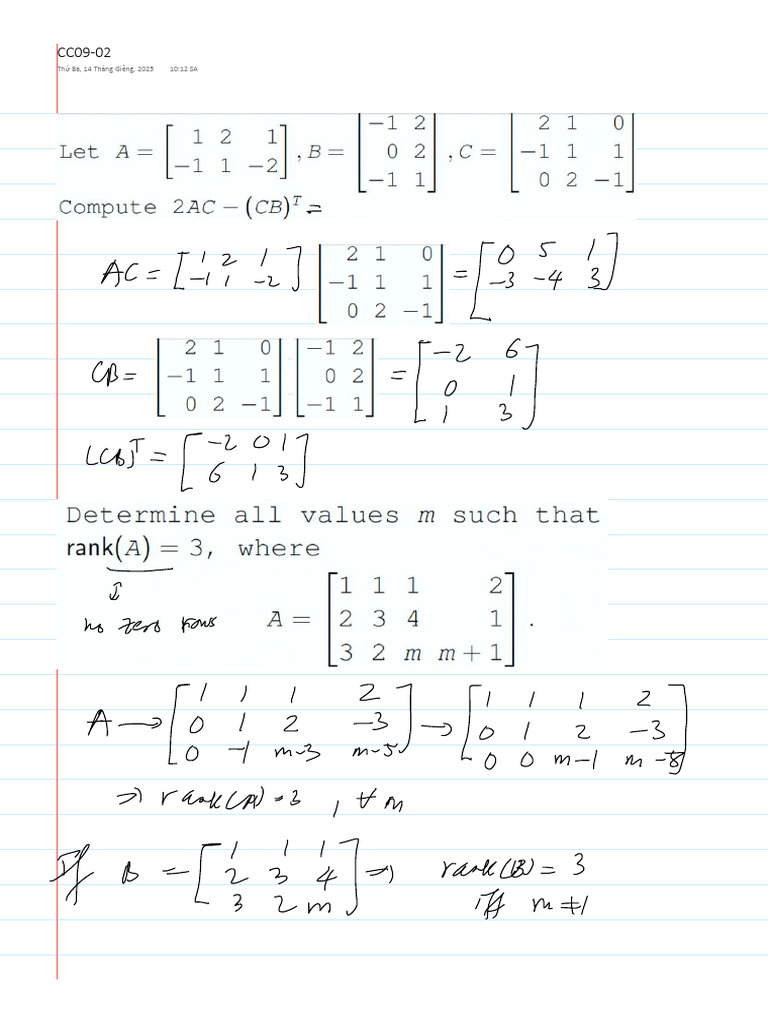 CC09-02
Thứ Ba, 14 Tháng Giêng, 2025 10:12 SA
Let A = [1 2 1; -1 1 -2], B = [-1 2; 0 2; -1 1], C = [2 1 0; -1 1 1; 0 2 -1]
Compute 2AC - (CB)^T =
AC = [1 2 1; -1 1 -2] [2 1 0; -1 1 1; 0 2 -1] = [0 5 1; -3 -4 3]
CB = [2 1 0; -1 1 1; 0 2 -1] [-1 2; 0 2; -1 1] = [-2 6; 0 1; 1 3]
(CB)^T = [-2 0 1; 6 1 3]
Determine all values m such that
rank(A) = 3, where
⇕
no zero rows
A = [1 1 1 2; 2 3 4 1; 3 2 m m+1].
A → [1 1 1 2; 0 1 2 -3; 0 -1 m-3 m-5] → [1 1 1 2; 0 1 2 -3; 0 0 m-1 m-8]
⇒ rank(A) = 3, ∀ m
If B = [1 1 1; 2 3 4; 3 2 m] ⇒ rank(B) = 3
iff m ≠ 1